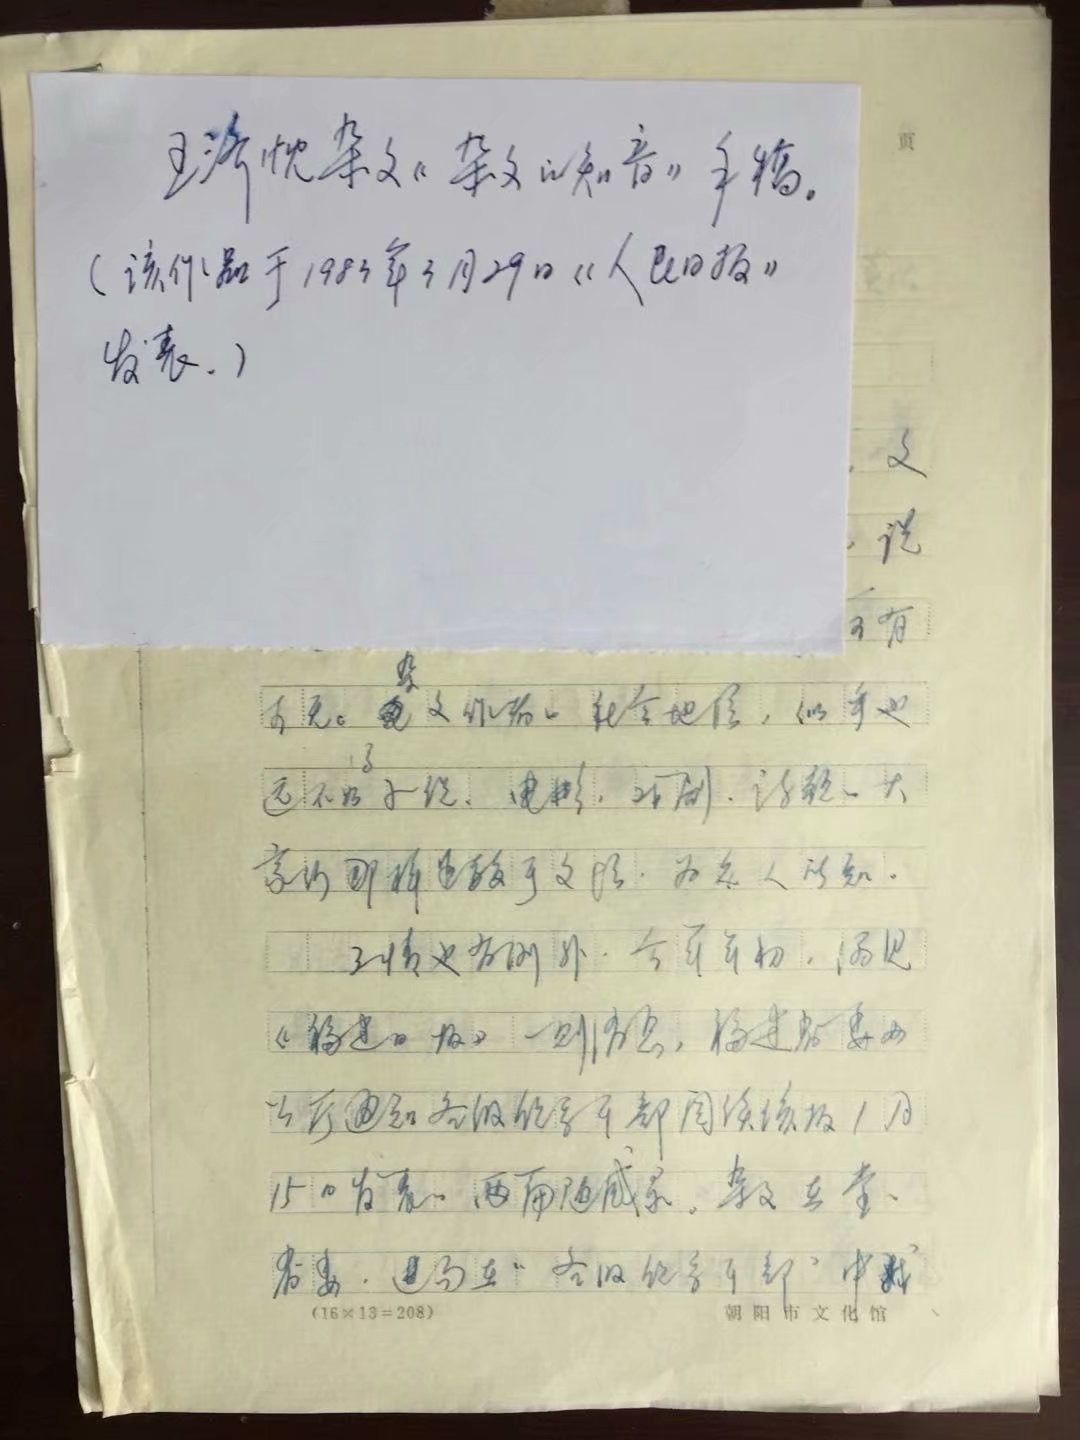 王济忱杂文《杂文的知音》手稿。
(该作品于1983年3月29日《人民日报》
发表.)
页
文
说
可有
可无。杂文作者的社会地位,似乎也
远不如小说、电影、话剧、诗歌的大
为众人所知.
事情也有例外.今年年初,偶见
《福建日报》一则消息,福建省委办
公厅通知各级领导干部阅读该报1月
15日发表的两篇随感录。杂文
省委.在“各级领导干部”中
(16×13=208)
朝阳市文化馆